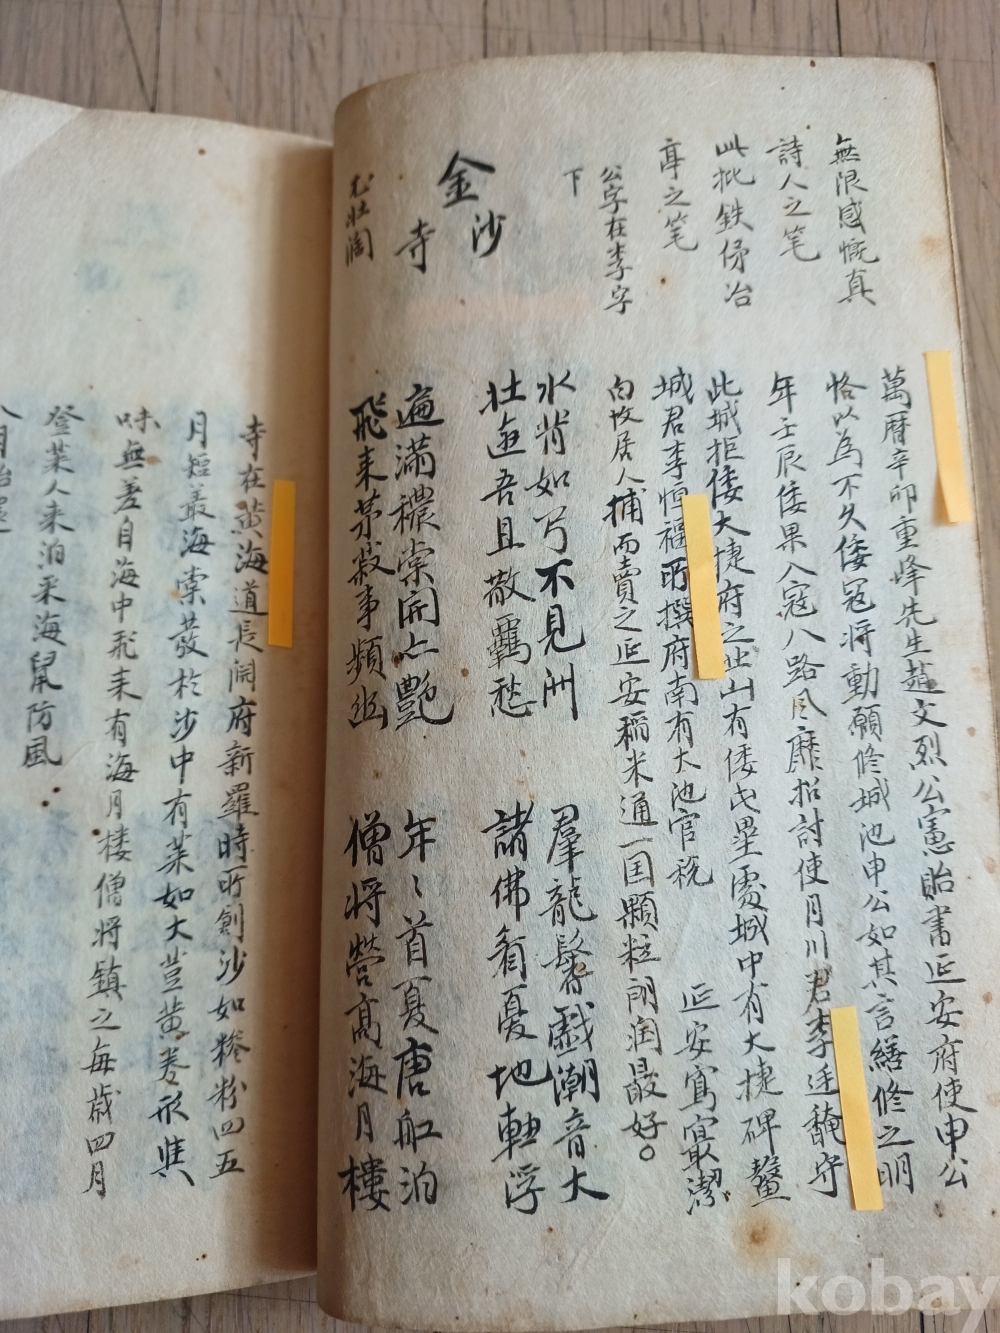 無限感慨真
詩人之笔
此批鉄侈冶
亭之笔
公字在李字
下
萬曆辛卯重峰先生趙文烈公憲貽書延安府使申公
恪以為不久倭寇将動願修城池申公如其言繕修之明
年壬辰倭果入寇八路风靡招討使月川君李廷馣守
此城拒倭大捷府之
山有倭屯壘處城中有大捷碑鰲
城君李恒福所撰府南有大池官税
延安寫冣潔
白故居人捕而賣之延安稲米通一国顆粒朗润最好。
金沙
寺
尤壮濶
水背如弓不見洲
羣龍鬐戱潮音大
壮遊吾且散羈愁
諸佛看憂地軸浮
遍滿穠棠開亦艶
年〻首夏唐舡泊
飛来茅殺事頻幽
僧将營高海月樓
寺在黄海道長淵府新羅時所創沙如糁粉四五
月短最海棠發於沙中有菜如大荳黄卷形
味無差自海中飛来有海月楼僧将鎮之每歲四月
登莱人来泊采海鼠防風
八月始還
kobay